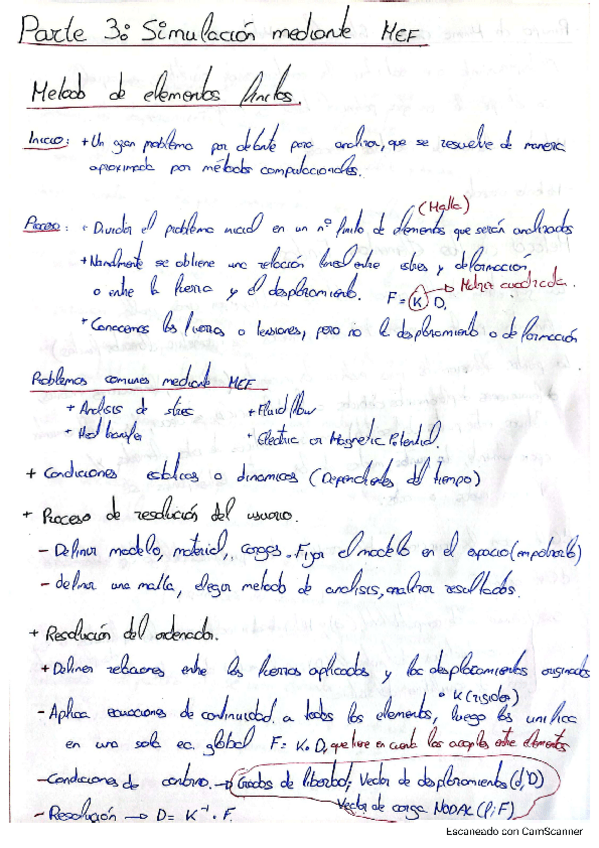 Parte 3: Simulación mediante MEF
Metodo de elementos finitos.
Inicio: + Un gran problema por delante para analizar, que se resuelve de manera
aproximada por métodos computacionales.
(Malla)
Proceso: + Dividir el problema inicial en un nº finito de elementos que serán analizados
+ Normalmente se obtiene una relación lineal entre stres y deformación,
o entre la fuerza y el desplazamiento. F = K D. → Matriz cuadrada.
+ Conocemos las fuerzas o tensiones, pero no el desplazamiento o deformación
Problemas comunes mediante MEF
+ Analisis de stres + Fluid flow
+ Heat transfer + Electric or Magnetic Potential.
+ Condiciones estáticas o dinamicas (Dependientes del tiempo)
+ Proceso de resolución del usuario.
- Definir modelo, material, cargas. Fijar el modelo en el espacio (empotrarlo)
- definir una malla, elegir metodo de analisis, analizar resultados.
+ Resolución del ordenador.
+ Definen relaciones entre las fuerzas aplicadas y los desplazamientos originados
• K (rigidez)
- Aplica ecuaciones de continuidad a todos los elementos, luego las unifica
en una sola ec. global F = K • D, que tiene en cuenta los acoples entre elementos
- Condiciones de contorno. → Grados de libertad; Vector de desplazamientos (d;D)
Vector de carga NODAL (f;F)
- Resolución → D = K⁻¹ • F.
Escaneado con CamScanner